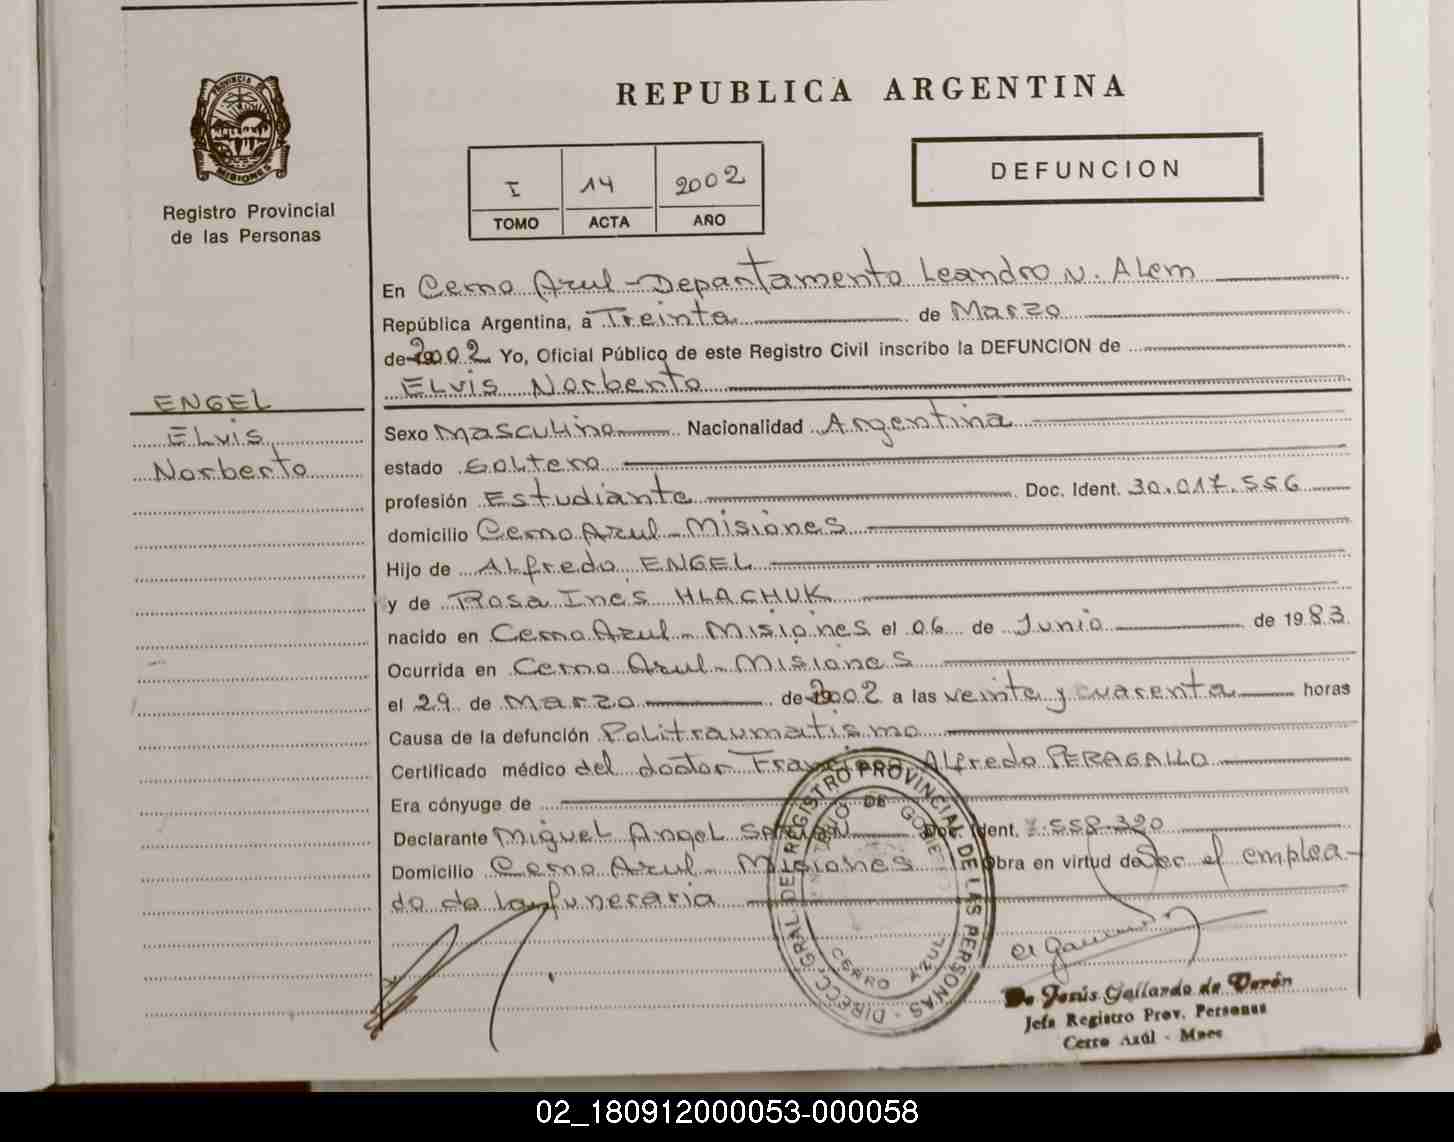 PROVINCIA DE
MISIONES
Registro Provincial
de las Personas
REPUBLICA ARGENTINA
I 14 2002
TOMO ACTA AÑO
DEFUNCION
En Cerro Azul - Departamento Leandro N. Alem
República Argentina, a Treinta de Marzo
de 2002 Yo, Oficial Público de este Registro Civil inscribo la DEFUNCION de
ELvis Norberto
ENGEL
ELvis
Norberto
Sexo Masculino Nacionalidad Argentina
estado Soltero
profesión Estudiante Doc. Ident. 30.017.556
domicilio Cerro Azul - Misiones
Hijo de ALfredo ENGEL
y de Rosa Ines HLACHUK
nacido en Cerro Azul - Misiones el 06 de Junio de 1983
Ocurrida en Cerro Azul - Misiones
el 29 de Marzo de 2002 a las veinte y cuarenta horas
Causa de la defunción Politraumatismo
Certificado médico del doctor Francisco Alfredo PERAGALLO
Era cónyuge de
Declarante Miguel Angel Doc. Ident. 7.558.320
Domicilio Cerro Azul - Misiones Obra en virtud de Ser el emplea-
do de la funeraria
DIRECC. GRAL. DEL REGISTRO PROVINCIAL DE LAS PERSONAS
MINISTERIO DE GOBIERNO
CERRO AZUL
De Jesús Gallardo de Verón
Jefa Registro Prov. Personas
Cerro Azúl - Mnes
02_180912000053-000058